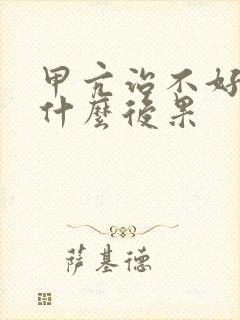 甲亢治不好
什麼後果
萨基德